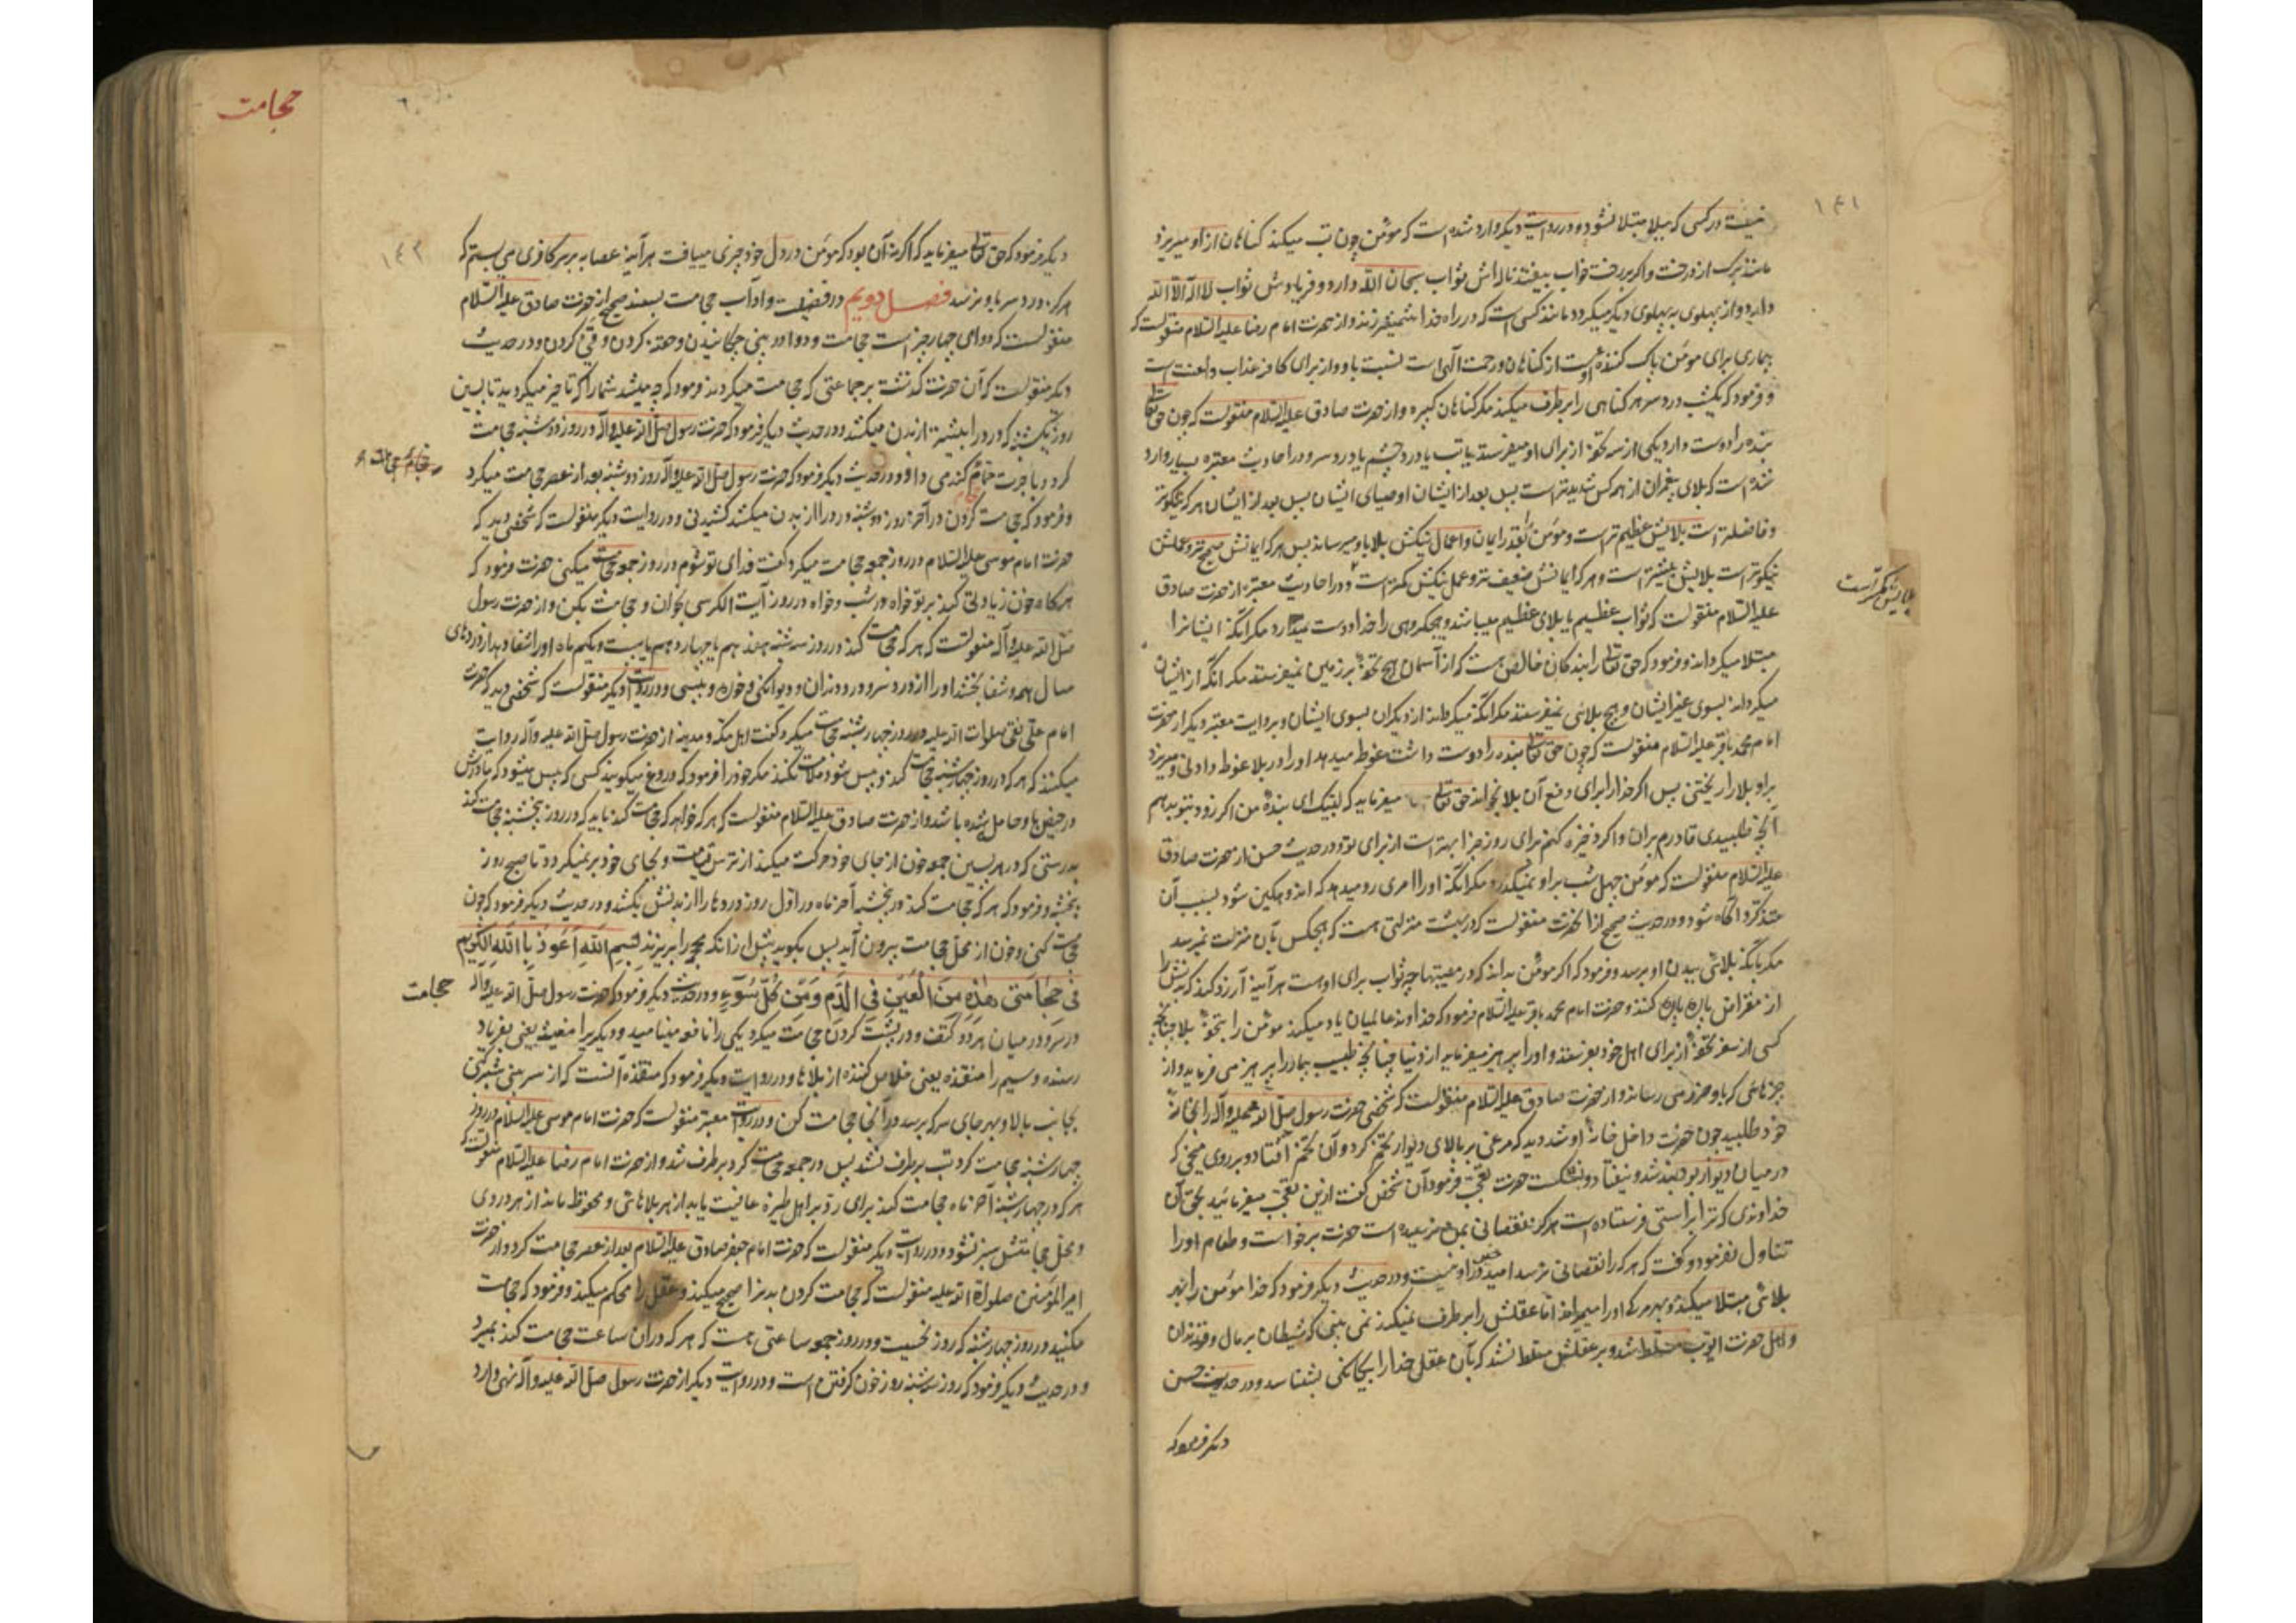 ۱۴۱
نیست در کسی که ببلا مبتلا نشود و در روایت دیگر وارد شده است که مؤمن چون تب میکند کناهان از او میریزد
مانند برک از درخت و اکر بر رخت خواب بیفتد ناله اش ثواب سبحان الله دارد و فریادش ثواب لا اله الا الله
دارد و از پهلوی به پهلوی دیکر میکردد مانند کسی است که در راه خدا شمشیر زند و از حضرت امام رضا علیه السلام منقولست که
بیماری برای مومن پاک کننده اوست از کناهان و رحمت الهی است نسبت باو و از برای کافر عذاب و لعنت است
و فرمود که یکشب درد سر هر کناهی را برطرف میکند مکر کناهان کبیره و از حضرت صادق علیه السلام منقولست که چون حق تعالی
بنده را دوست دارد یکی از سه تحفه از برای او میفرستد یا تب یا درد چشم یا درد سر و در احادیث معتبره بسیار وارد
شده است که بلای پیغمبران از همه کس شدیدتر است پس بعد از ایشان اوصیای ایشان پس بعد از ایشان هر که نیکوتر
و فاضلتر است بلایش عظیم تر است و مومن را بقدر ایمان و اعمال نیکش بلا باو میرساند پس هر که ایمانش صحیح تر و عملش
نیکوتر است بلایش بیشتر است و هر که ایمانش ضعیف تر و عمل نیکش کمتر است و در احادیث معتبره از حضرت صادق
بلایش کمتر است
علیه السلام منقولست که ثواب عظیم با بلای عظیم میباشد و هیچ کروهی را خدا دوست نمیدارد مکر آنکه ایشانرا
مبتلا میکرداند و فرمود که حق تعالی را بندکان خالص هست که از آسمان هیچ تحفه بر زمین نمیفرستد مکر آنکه از ایشان
میکرداند بسوی غیر ایشان و هیچ بلائی نمیفرستد مکر آنکه میکرداند از دیکران بسوی ایشان و بروایت معتبر دیکر از حضرت
امام محمد باقر علیه السلام منقولست که چون حق تعالی بنده را دوست داشت غوطه میدهد او را در بلا غوطه دادنی و میریزد
بر او بلا را ریختنی پس اکر خدا را برای دفع آن بلا بخواند حق تعالی میفرماید که لبیک ای بنده من اکر زود بتو بدهم
آنچه طلبیدی قادرم بر آن و اکر ذخیره کنم برای روز جزا بهتر است از برای تو و در حدیث حسن از حضرت صادق
علیه السلام منقولست که مومن چهل شب بر او نمیکذرد مکر آنکه او را امری رو میدهد که اندوهکین شود بسبب آن
متذکر و آکاه شود و در حدیث صحیح از آنحضرت منقولست که در بهشت منزلتی هست که هیچکس بآن منزلت نمیرسد
مکر بآنکه بلائی ببدن او برسد و فرمود که اکر مومن بداند که در مصیبتها چه ثواب برای او هست هر آینه آرزو کند که بدنش را
از مقراض پاره پاره کنند و حضرت امام محمد باقر علیه السلام فرمود که خداوند عالمیان یاد میکند مومن را بتحفه بلا چنانچه
کسی از سفر تحفه از برای اهل خود بفرستد و او را پرهیز میفرماید از دنیا چنانچه طبیب بیمار را پرهیز می فرماید از
چیزهائی که باو ضرر می رساند و از حضرت صادق علیه السلام منقولست که شخصی حضرت رسول صلی الله علیه و آله را بخانه
خود طلبید چون حضرت داخل خانه او شد دید که مرغی بر بالای دیوار تخم کرد و آن تخم افتاد و بر روی میخی که
در میان دیوار بود بند شد و نیفتاد و نشکست حضرت تعجب فرمود آن شخص کفت ازین تعجب میفرمائید بحق آن
خداوندی که ترا براستی فرستاده است هرکز نقصانی بمن نرسیده است حضرت برخواست و طعام او را
تناول نفرمود و کفت که هر که را نقصانی نرسد امید خیر در او نیست و در حدیث دیکر فرمود که خدا مومن را بهر
بلائی مبتلا میکند و بهر مرک او را میمیراند اما عقلش را برطرف نمیکند نمی بینی که شیطان بر مال و فرزندان
و اهل حضرت ایوب مسلط شد و بر عقلش مسلط نشد که بآن عقل خدا را بیکانکی بشناسد و در حدیث حسن
دیکر فرمود که
حجامت
۱۴۲
دیکر فرمود که حق تعالی میفرماید که اکر نه آن بود که مومن در دل خود چیزی مییافت هر آینه عصابه بر سر کافری می بستم که
هرکز درد سر باو نرسد فصل دویم در فضیلت و آداب حجامت بسند صحیح از حضرت صادق علیه السلام
منقولست که دوای چهار چیز است حجامت و دوا در بینی چکانیدن و حقنه کردن و قی کردن و در حدیث
دیکر منقولست که آن حضرت کذشت بر جماعتی که حجامت میکردند فرمود که چه میشد شما را که تاخیر میکردید تا پسین
روز یکشنبه که درد را بیشتر از بدن میکشد و در حدیث دیکر فرمود که حضرت رسول صلی الله علیه و آله در روز دوشنبه حجامت
کرد و باجرت حجام کندمی داد و در حدیث دیکر فرمود که حضرت رسول صلی الله علیه و آله روز دوشنبه بعد از عصر حجامت میکرد
و فرمود که حجامت کردن در آخر روز دوشنبه درد را از بدن میکشد کشیدنی و در روایت دیکر منقولست که شخصی دید که
حضرت امام موسی علیه السلام در روز جمعه حجامت میکرد کفت فدای تو شوم در روز جمعه حجامت میکنی حضرت فرمود که
هرکاه خون زیادتی کند بر تو خواه در شب و خواه در روز آیت الکرسی بخوان و حجامت بکن و از حضرت رسول
صلی الله علیه و آله منقولست که هر که حجامت کند در روز سه شنبه هفدهم یا چهاردهم یا بیست و یکم ماه او را شفا دهد از دردهای
سال همه و شفا بخشد او را از درد سر و درد دندان و دیوانکی و خوره و پیسی و در روایت دیکر منقولست که شخصی دید که حضرت
امام علی نقی صلوات الله علیه در روز چهارشنبه حجامت میکرد کفت اهل مکه و مدینه از حضرت رسول صلی الله علیه و آله روایت
میکنند که هر که در روز چهارشنبه حجامت کند و پیس شود ملامت نکند مکر خود را فرمود که دروغ میکویند کسی که پیس میشود که مادرش
در حیض باو حامل شده باشد و از حضرت صادق علیه السلام منقولست که هر که خواهد که حجامت کند باید که در روز پنجشنبه حجامت کند
بدرستی که در هر پسین جمعه خون از جای خود حرکت میکند از ترس قیامت و بجای خود بر نمیکردد تا صبح روز
پنجشنبه و فرمود که هر که حجامت کند در پنجشنبه آخر ماه در اول روز دردها را از بدنش بکشد و در حدیث دیکر فرمود که چون
حجامت کنی و خون از محل حجامت بیرون آید پس بکوید پیش از آنکه محجم را بریزند بسم الله اعوذ بالله الکریم
فی حجامتی هذه من العین فی الدم و من کل سوء و در حدیث دیکر فرمود که حضرت رسول صلی الله علیه و آله
حجامت
در سر و در میان هر دو کتف و در پشت کردن حجامت میکرد یکی را نافعه مینامید و دیکری را مغیثه یعنی بفریاد
رسنده و سیم را منقذه یعنی خلاص کننده از بلاها و در روایت دیکر فرمود که منقذه آنست که از سر بینی شبر کنی
بجانب بالا و بهر جای سر که برسد در آنجا حجامت کن و در روایت معتبر منقولست که حضرت امام موسی علیه السلام در روز
چهارشنبه حجامت کرد تب برطرف نشد پس در جمعه حجامت کرد برطرف شد و از حضرت امام رضا علیه السلام منقولست که
هر که در چهارشنبه آخر ماه حجامت کند برای رد بر اهل طیره عافیت یابد از هر بلائی و محفوظ ماند از هر دردی
و محل حجامتش سبز نشود و در روایت دیکر منقولست که حضرت امام جعفر صادق علیه السلام بعد از عصر حجامت کرد و از حضرت
امیر المؤمنین صلواة الله علیه منقولست که حجامت کردن بدن را صحیح میکند و عقل را محکم میکند و فرمود که حجامت
مکنید در روز چهارشنبه که روز نحسیست و در روز جمعه ساعتی هست که هر که در آن ساعت حجامت کند بمیرد
و در حدیث دیکر فرمود که روز سه شنبه روز خون کرفتن است و در روایت دیکر از حضرت رسول صلی الله علیه و آله نهی وارد